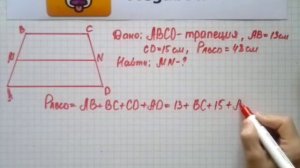 B C
Дано: ABCD-трапеция, AB=13см
CD=15см, PABCD=48см
M N
Найти: MN-?
A D
PABCD=AB+BC+CD+AD=13+BC+15+A